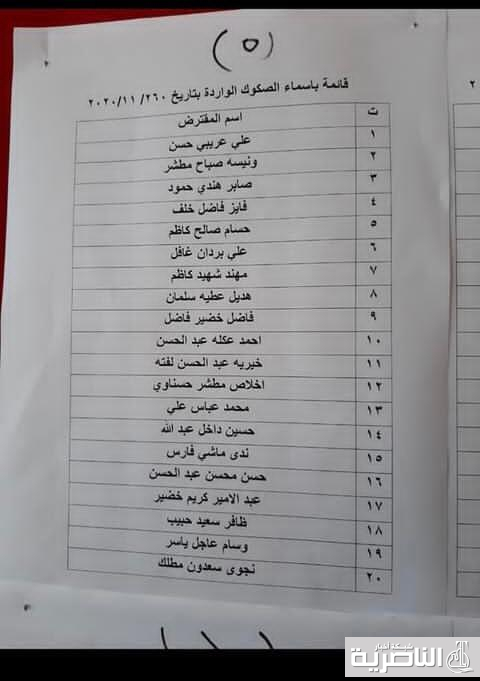 (٥)
قائمة باسماء الصكوك الواردة بتاريخ ٢٦٠/ ٢٠٢٠/١١
ت اسم المقترض
١ علي عريبي حسن
٢ ونيسه صباح مطشر
٣ صابر هندي حمود
٤ فايز فاضل خلف
٥ حسام صالح كاظم
٦ علي بردان غافل
٧ مهند شهيد كاظم
٨ هديل عطيه سلمان
٩ فاضل خضير فاضل
١٠ احمد عكله عبد الحسن
١١ خيريه عبد الحسن لفته
١٢ اخلاص مطشر حسناوي
١٣ محمد عباس علي
١٤ حسين داخل عبد الله
١٥ ندى ماشي فارس
١٦ حسن محسن عبد الحسن
١٧ عبد الامير كريم خضير
١٨ ظافر سعيد حبيب
١٩ وسام عاجل ياسر
٢٠ نجوى سعدون مطلك
٢
شبكة اخبار
الناصرية